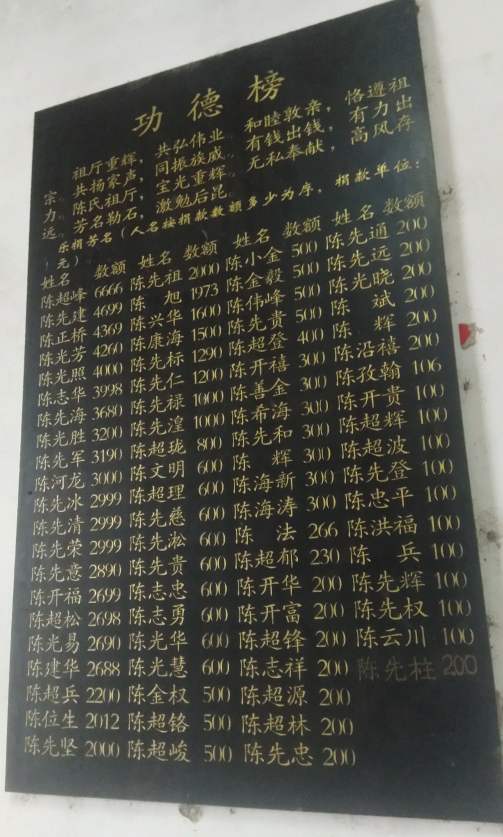 功德榜
祖厅重辉，共弘伟业。和睦敦亲，恪遵祖
宗。共扬家声，同振族威。有钱出钱，有力出
力。陈氏祖厅，宝光重辉。无私奉献，高风存
远。芳名勒石，激勉后昆。
乐捐芳名（人名按捐款数额多少为序，捐款单位：
元）
姓名 数额 姓名 数额 姓名 数额 姓名 数额
陈超峰 6666 陈先祖 2000 陈小金 500 陈先通 200
陈先建 4699 陈 旭 1973 陈金毅 500 陈先远 200
陈正桥 4369 陈兴华 1600 陈伟峰 500 陈光晓 200
陈光芳 4260 陈康海 1500 陈先贵 500 陈 斌 200
陈光照 4000 陈先标 1290 陈超登 400 陈 辉 200
陈志华 3998 陈先仁 1200 陈开禧 300 陈沿禧 200
陈先海 3680 陈先禄 1000 陈善金 300 陈孜翰 106
陈光胜 3200 陈先湟 1000 陈希海 300 陈开贵 100
陈先军 3190 陈超珑 800 陈先和 300 陈超辉 100
陈河龙 3000 陈文明 600 陈 辉 300 陈超波 100
陈先冰 2999 陈超理 600 陈海新 300 陈先登 100
陈先清 2999 陈先慈 600 陈海涛 300 陈忠平 100
陈先荣 2999 陈先淞 600 陈 法 266 陈洪福 100
陈先意 2890 陈先贵 600 陈超郁 230 陈 兵 100
陈开福 2699 陈志忠 600 陈开华 200 陈先辉 100
陈超松 2698 陈志勇 600 陈开富 200 陈先权 100
陈光易 2690 陈光华 600 陈超锋 200 陈云川 100
陈建华 2688 陈光慧 600 陈志祥 200 陈先柱 200
陈超兵 2200 陈金权 500 陈超源 200
陈位生 2012 陈超铬 500 陈超林 200
陈先坚 2000 陈超峻 500 陈先忠 200